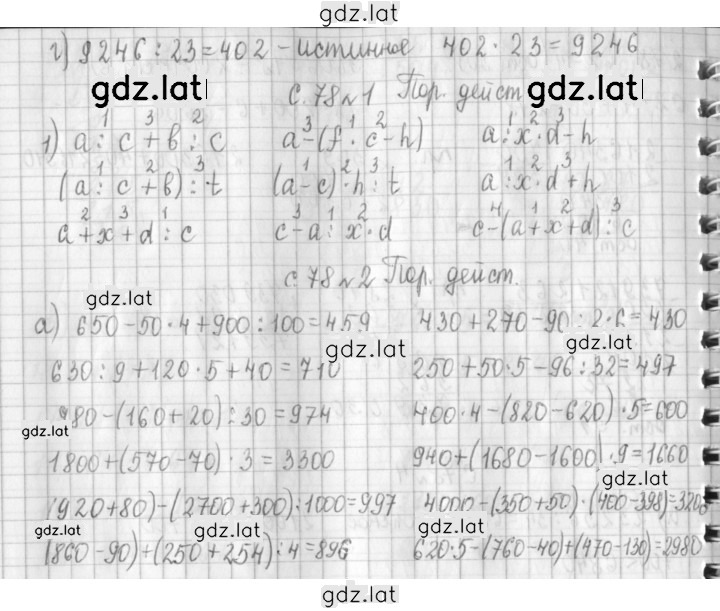 gdz.lat
г) 9246 : 23 = 402 - истинное 402 · 23 = 9246
gdz.lat
с. 78 №1 Пор. дейст
1 3 2 3 1 2 1 2 3
1) a : c + b : c a - (f · c - h) a : x · d - h
1 2 3 1 2 3 1 2 3
(a : c + b) : t (a - c) · h : t a : x · d + h
2 3 1 3 1 2 4 1 2 3
a + x + d : c c - a : x · d c - (a + x + d) : c
с. 78 №2 Пор. дейст.
gdz.lat
а) 650 - 50 · 4 + 900 : 100 = 459 430 + 270 - 90 : 2 · 6 = 430
gdz.lat gdz.lat
630 : 9 + 120 · 5 + 40 = 710 250 + 50 · 5 - 96 : 32 = 497
980 - (160 + 20) : 30 = 974 400 · 4 - (820 - 620) · 5 = 600
gdz.lat
1800 + (570 - 70) · 3 = 3300 940 + (1680 - 1600) · 9 = 1660
gdz.lat
(920 + 80) - (2700 + 300) : 1000 = 997 4000 - (350 + 50) · (400 - 398) = 3200
gdz.lat gdz.lat gdz.lat
(860 - 90) + (250 + 254) : 4 = 896 620 · 5 - (760 - 40) + (470 - 130) = 2980
gdz.lat